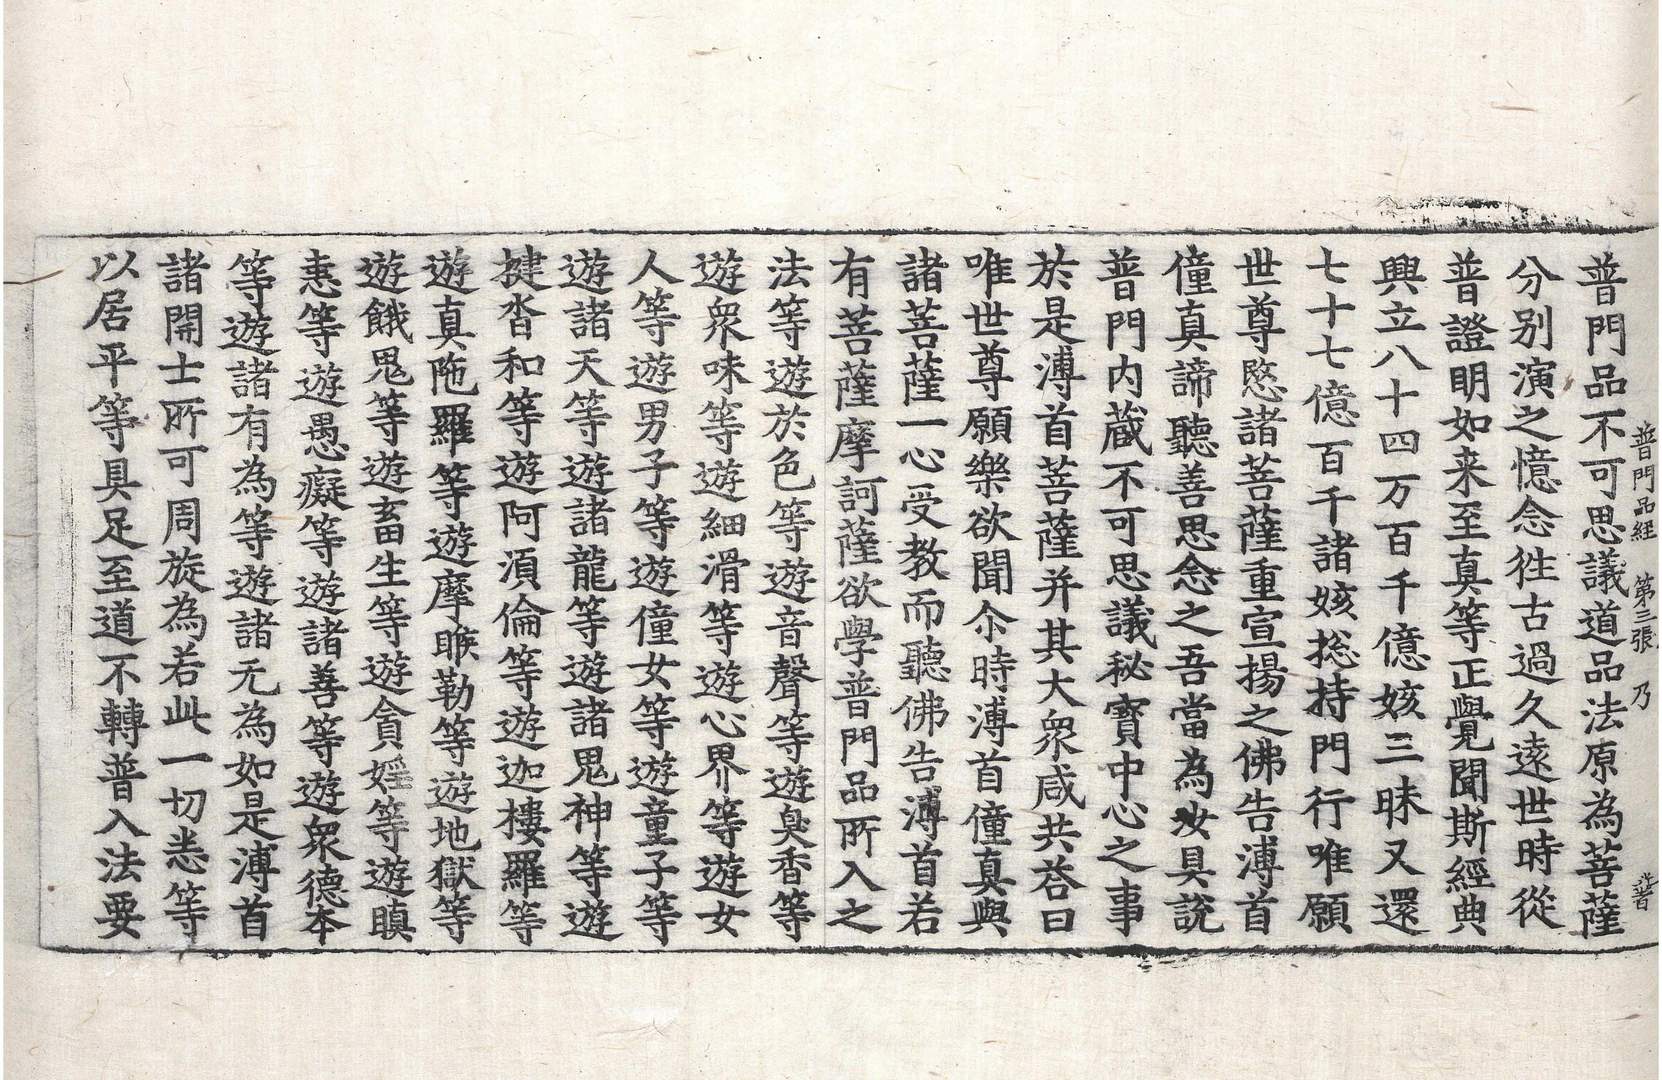 普門品經　第三張　乃
普
普門品不可思議道品法原為菩薩
分別演之憶念徃古過久遠世時從
普證明如来至真等正覺聞斯經典
興立八十四万百千億姟三昧又還
七十七億百千諸姟揔持門行唯願
世尊愍諸菩薩重宣揚之佛告溥首
僮真諦聽善思念之吾當為汝具說
普門内蔵不可思議秘寶中心之事
於是溥首菩薩并其大衆咸共荅曰
唯世尊願樂欲聞尒時溥首僮真與
諸菩薩一心受教而聽佛告溥首若
有菩薩摩訶薩欲學普門品所入之
法等遊於色等遊音聲等遊臭香等
遊衆味等遊細滑等遊心界等遊女
人等遊男子等遊僮女等遊童子等
遊諸天等遊諸龍等遊諸鬼神等遊
揵沓和等遊阿須倫等遊迦樓羅等
遊真陁羅等遊摩睺勒等遊地獄等
遊餓鬼等遊畜生等遊貪婬等遊瞋
恚等遊愚癡等遊諸善等遊衆德本
等遊諸有為等遊諸无為如是溥首
諸開士所可周旋為若此一切悉等
以居平等具足至道不轉普入法要